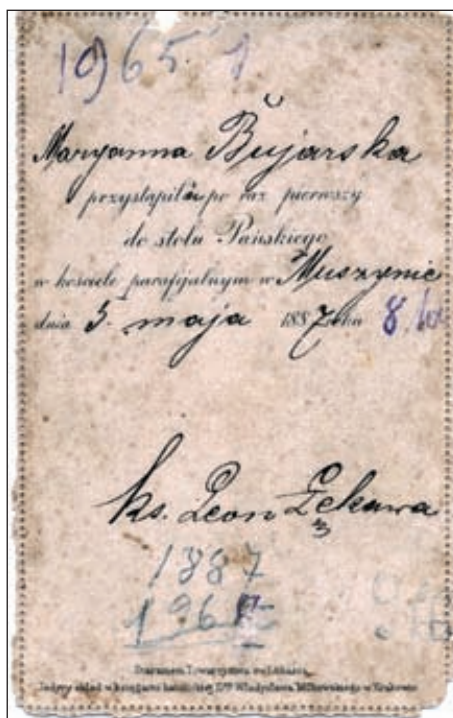 1965 1
Maryanna Bujarska
przystąpiła po raz pierwszy
do stołu Pańskiego
w kościele parafjalnym w Muszynie
dnia 5. maja 1887 roku 8
ks. Leon
1887
196
Staraniem Towarzystwa św. Łukasza.
Jedyny skład w księgarni katolickiej Dra Władysława Miłkowskiego w Krakowie